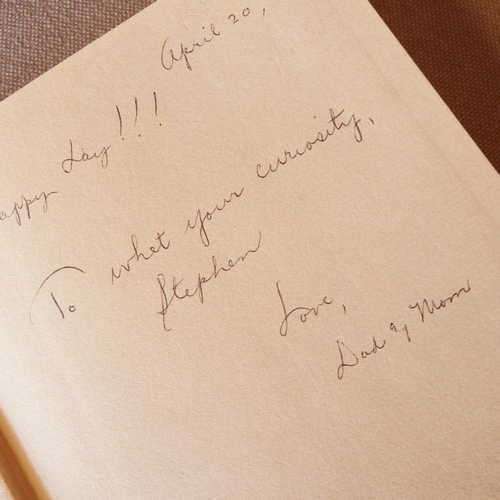 April 20,
appy day!!!
To whet your curiosity,
Stephen
Love,
Dad & Mom